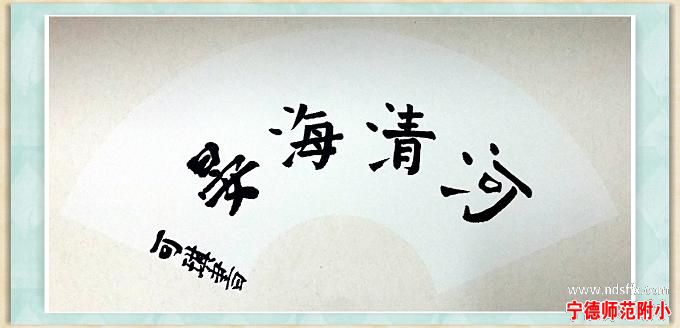 河清海晏
可琪書
www.ndsffx.com
宁德师范附小